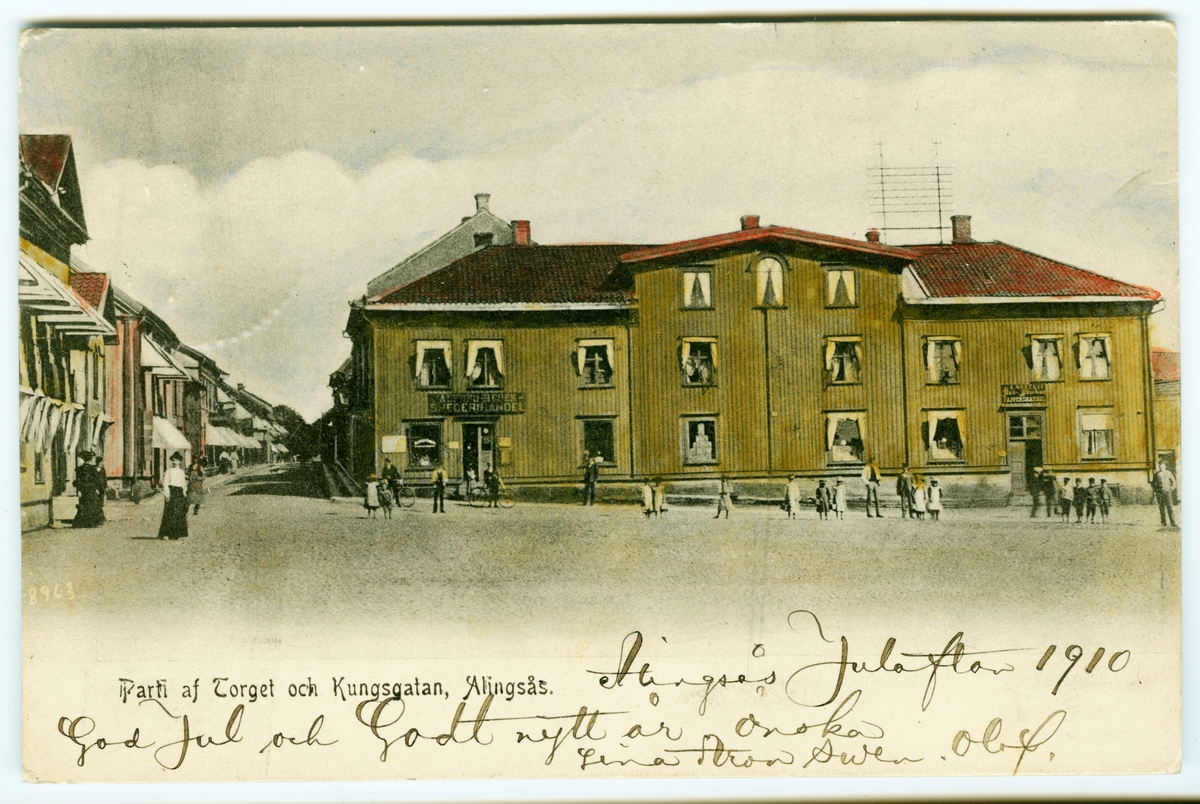 SPECERIHANDEL
8963
Parti af Torget och Kungsgatan, Alingsås.
Alingsås Julafton 1910
God Jul och Godt nytt år önska
Lina Aron Swen. Olof.